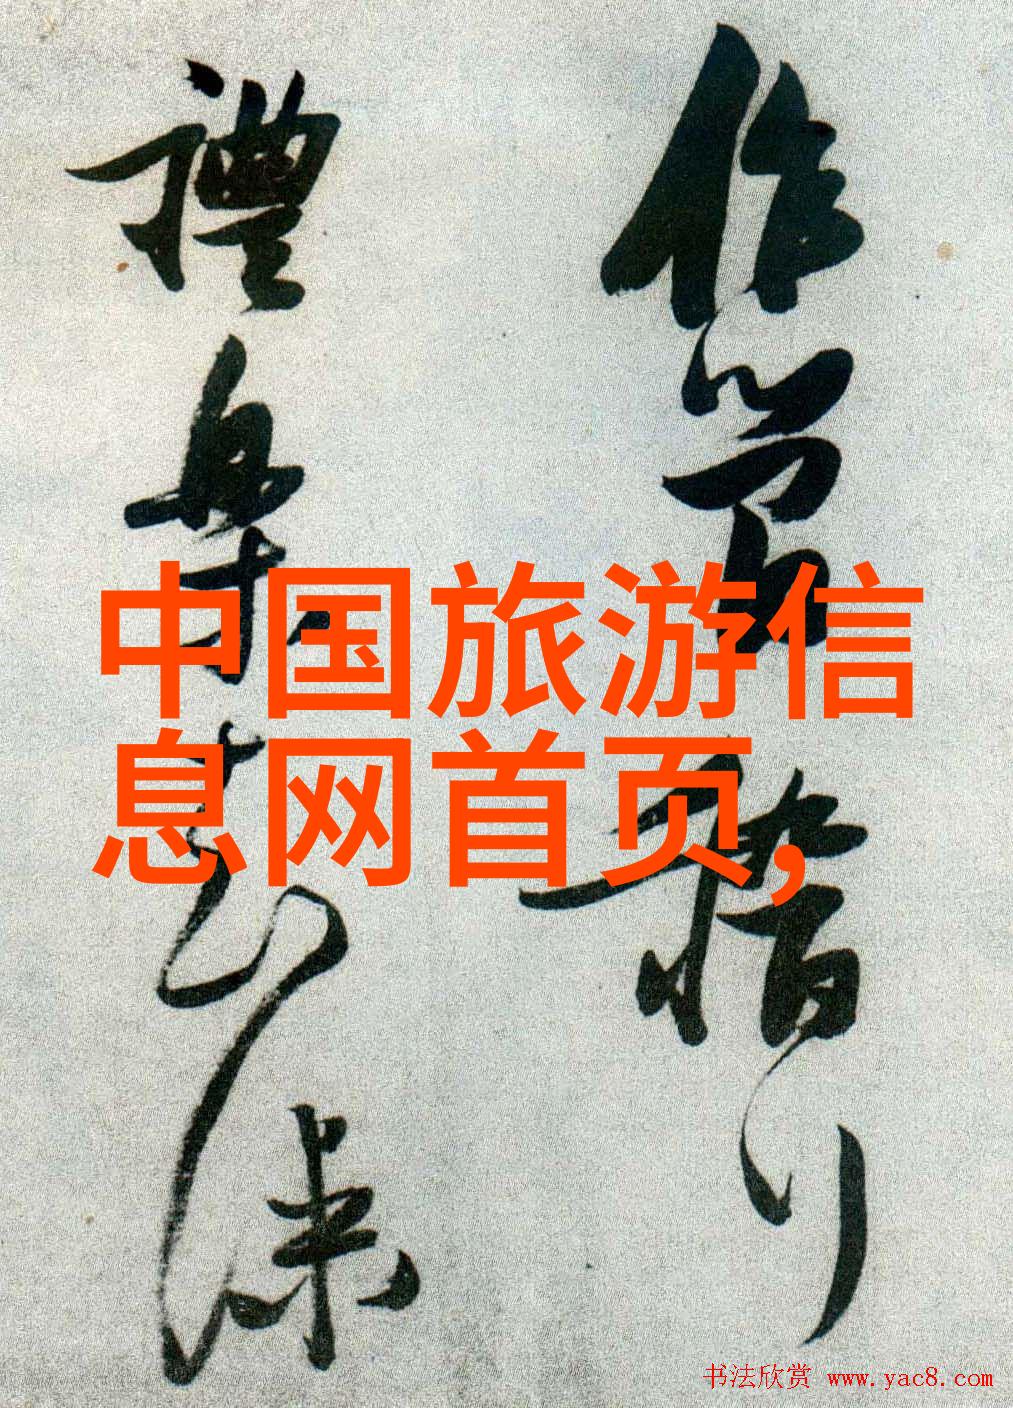 作箴稽行
禮樂
中国旅游信
息网首页,
书法欣赏 www.yac8.com